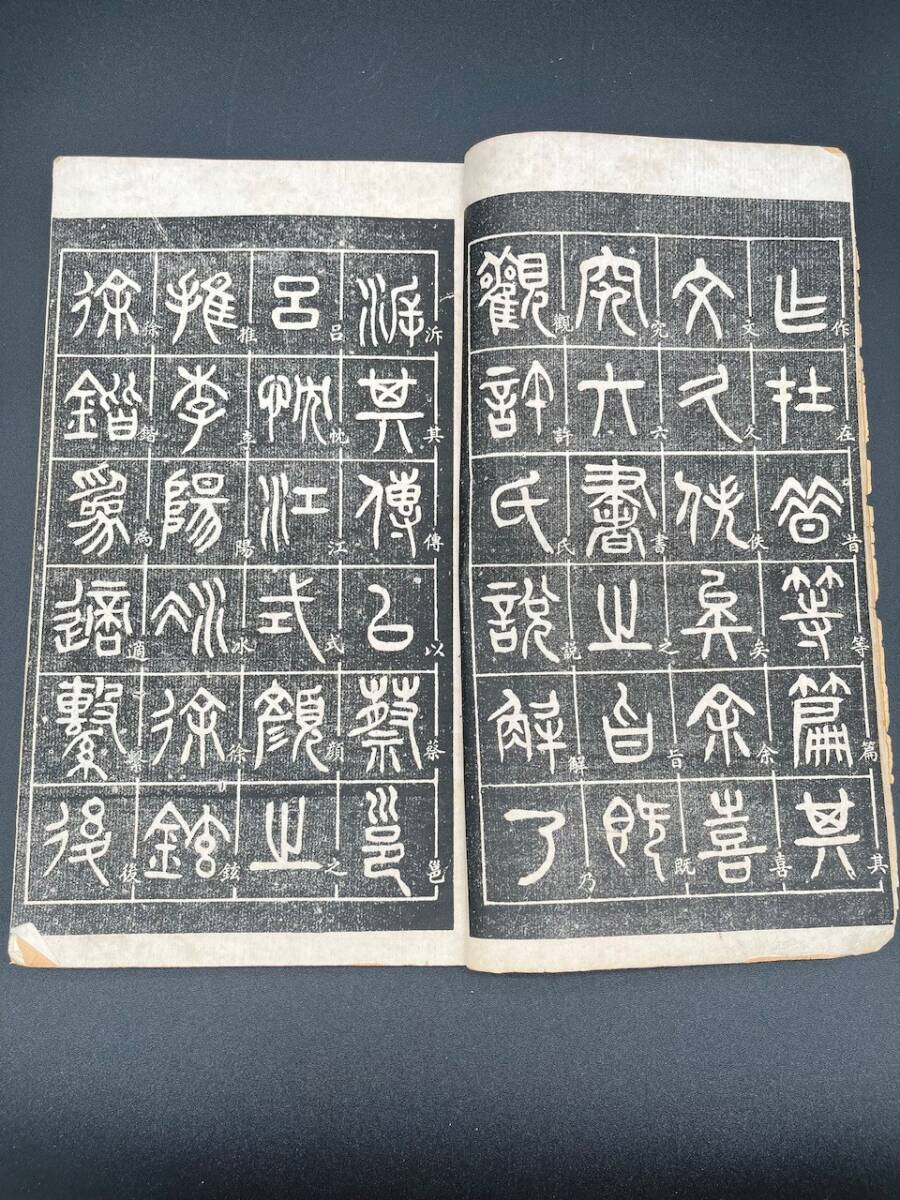 作在昔等篇其
文久佚矣余喜
究六書之旨既
觀許氏說解乃
泝其傳以蔡邕
呂忱江式顏之
推李陽冰徐鉉
徐鍇為適繫後